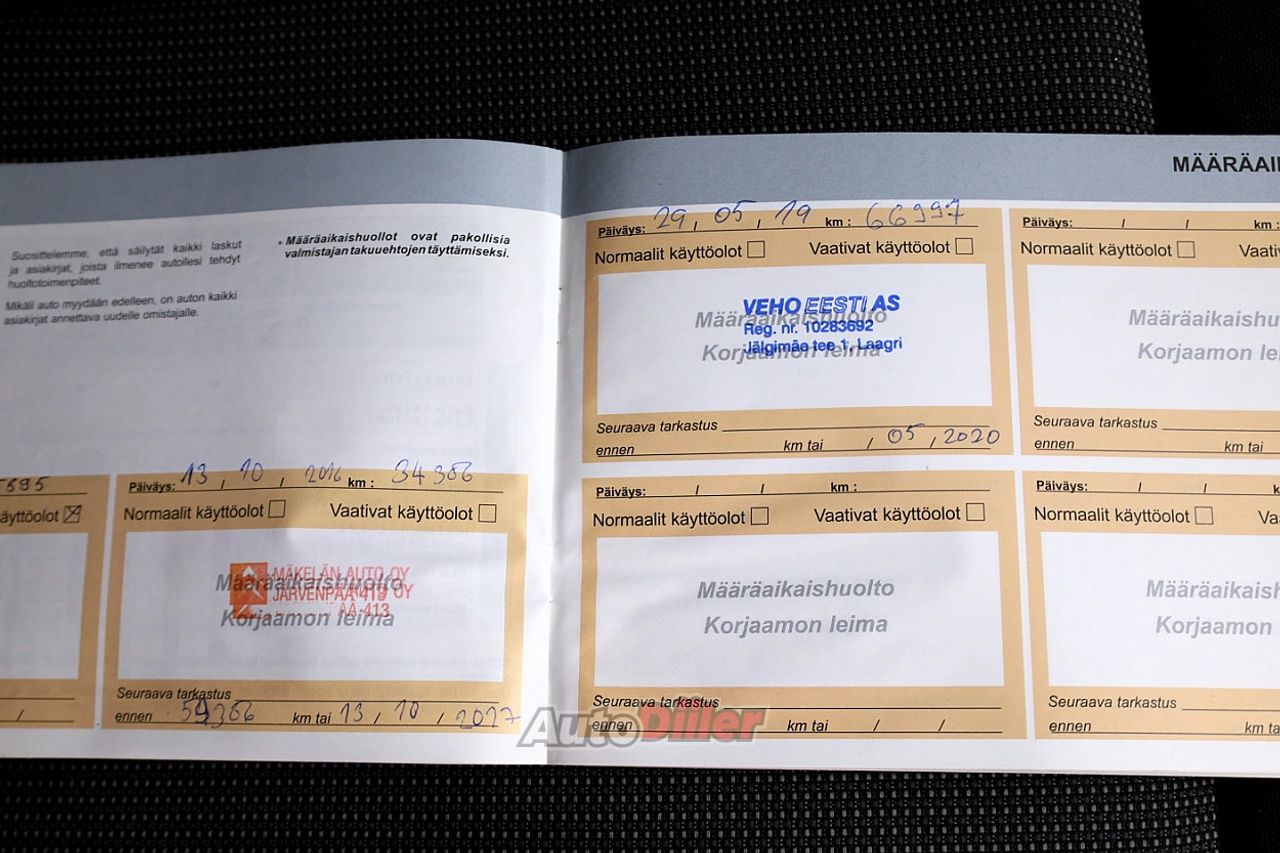 MÄÄRÄAI
Suosittelemme, että säilytät kaikki laskut
ja asiakirjat, joista ilmenee autollesi tehdyt
huoltotoimenpiteet.
Mikäli auto myydään edelleen, on auton kaikki
asiakirjat annettava uudelle omistajalle.
• Määräaikaishuollot ovat pakollisia
valmistajan takuuehtojen täyttämiseksi.
695
äyttöolot
/
Päiväys: 13, 10, 2016 km: 34386
Normaalit käyttöolot Vaativat käyttöolot
MÄKELÄN AUTO OY
Määräaikaishuolto
JÄRVENPÄÄ 419 OY
AA-413
Korjaamon leima
Seuraava tarkastus
ennen 54386 km tai 13, 10, 2017
Päiväys: 29, 05, 19 km: 66997
Normaalit käyttöolot Vaativat käyttöolot
VEHO EESTI AS
Määräaikaishuolto
Reg. nr. 10283692
Jälgimäe tee 1, Laagri
Korjaamon leima
Seuraava tarkastus
ennen km tai / 05, 2020
Päiväys: / / km:
Normaalit käyttöolot Vaati
Määräaikaishu
Korjaamon lei
Seuraava tarkastus
ennen km tai
Päiväys: / / km:
Normaalit käyttöolot Vaativat käyttöolot
Määräaikaishuolto
Korjaamon leima
Seuraava tarkastus
ennen km tai / /
Päiväys: / / k
Normaalit käyttöolot Va
Määräaikaish
Korjaamon
Seuraava tarkastus
ennen km ta
AutoDiller